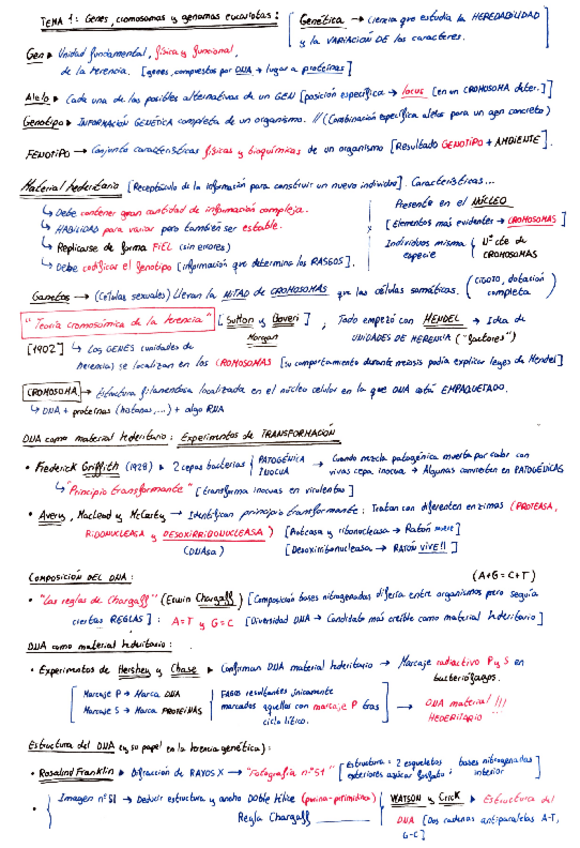 TEMA 1: Genes, cromosomas y genomas eucariotas: [Genética → Ciencia que estudia la HEREDABILIDAD
y la VARIACIÓN DE los caracteres.
Gen ▸ Unidad fundamental, física y funcional,
de la herencia. [genes, compuestos por DNA → lugar a proteínas]
Alelo ▸ Cada una de las posibles alternativas de un GEN [posición específica → locus [en un CROMOSOMA deter.]]
Genotipo ▸ INFORMACIÓN GENÉTICA completa de un organismo. // (Combinación específica alelos para un gen concreto)
FENOTIPO → Conjunto características físicas y bioquímicas de un organismo [Resultado GENOTIPO + AMBIENTE].
Material hereditario [Receptáculo de la información para construir un nuevo individuo]. Características...
↳ Debe contener gran cantidad de información compleja.
↳ HABILIDAD para variar pero también ser estable.
↳ Replicarse de forma FIEL (sin errores)
↳ Debe codificar el fenotipo [información que determina los RASGOS].
Presente en el NÚCLEO
[Elementos más evidentes → CROMOSOMAS]
Individuos misma especie { Nº cte de CROMOSOMAS
Gametos → (Células sexuales) llevan la MITAD de CROMOSOMAS que las células somáticas. (CIGOTO, dotación completa)
"Teoría cromosómica de la herencia" [Sutton y Boveri] ; Todo empezó con MENDEL → Idea de
Morgan UNIDADES DE HERENCIA ("factores")
[1902] ↳ Los GENES (unidades de
herencia) se localizan en los CROMOSOMAS [su comportamiento durante meiosis podía explicar leyes de Mendel]
CROMOSOMA → Estructura filamentosa localizada en el núcleo celular en la que DNA está EMPAQUETADO.
↳ DNA + proteínas (histonas,...) + algo RNA
DNA como material hereditario: Experimentos de TRANSFORMACIÓN
• Frederick Griffith (1928) ▸ 2 cepas bacterias { PATOGÉNICA INOCUA → Cuando mezcla patogénica muerta por calor con
vivas cepa inocua → Algunas convierten en PATOGÉNICAS
↳ "Principio transformante" [transforma inocuas en virulentas]
• Avery, MacLeod y McCarty → Identifican principio transformante: Tratan con diferentes enzimas (PROTEASA,
RIBONUCLEASA y DESOXIRRIBONUCLEASA) [Proteasa y ribonucleasa → Ratón MUERE]
(DNAsa) [Desoxirribonucleasa → RATÓN VIVE!!]
COMPOSICIÓN DEL DNA: (A+G = C+T)
• "Las reglas de Chargaff" (Erwin Chargaff) [Composición bases nitrogenadas difería entre organismos pero seguía
ciertas REGLAS]: A=T y G=C [Diversidad DNA → Candidato más creíble como material hereditario]
DNA como material hereditario:
• Experimentos de Hershey y Chase ▸ Confirman DNA material hereditario → Marcaje radiactivo P y S en
bacteriófagos.
[Marcaje P → Marca DNA
Marcaje S → Marca PROTEÍNAS
[FAGOS resultantes únicamente
marcados aquellos con marcaje P tras
ciclo lítico.] → DNA material !!!
HEREDITARIO
Estructura del DNA (y su papel en la herencia genética):
• Rosalind Franklin ▸ Difracción de RAYOS X → "Fotografía nº 51" [Estructura: 2 esqueletos exteriores azúcar fosfato; bases nitrogenadas interior]
• { Imagen nº 51 → Deducir estructura y ancho Doble Hélice (purina-pirimidina)
Regla Chargaff
{ WATSON y CRICK ▸ Estructura del
DNA [Dos cadenas antiparalelas A-T,
G-C]